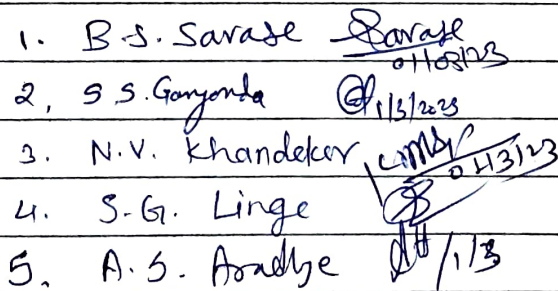 1. B.S. Sarase Sarase 01/03/23
2, S.S. Gonyonda 1/3/2023
3. N.V. Khandekar 01/3/23
4. S.G. Linge
5. A.S. Aradhye /1/3